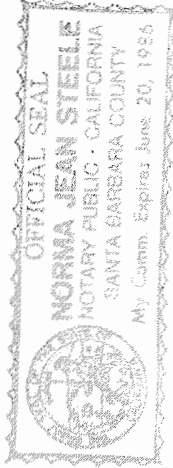 OFFICIAL SEAL
NORMA JEAN STEELE
NOTARY PUBLIC • CALIFORNIA
SANTA BARBARA COUNTY
My Comm. Expires June 20, 1996